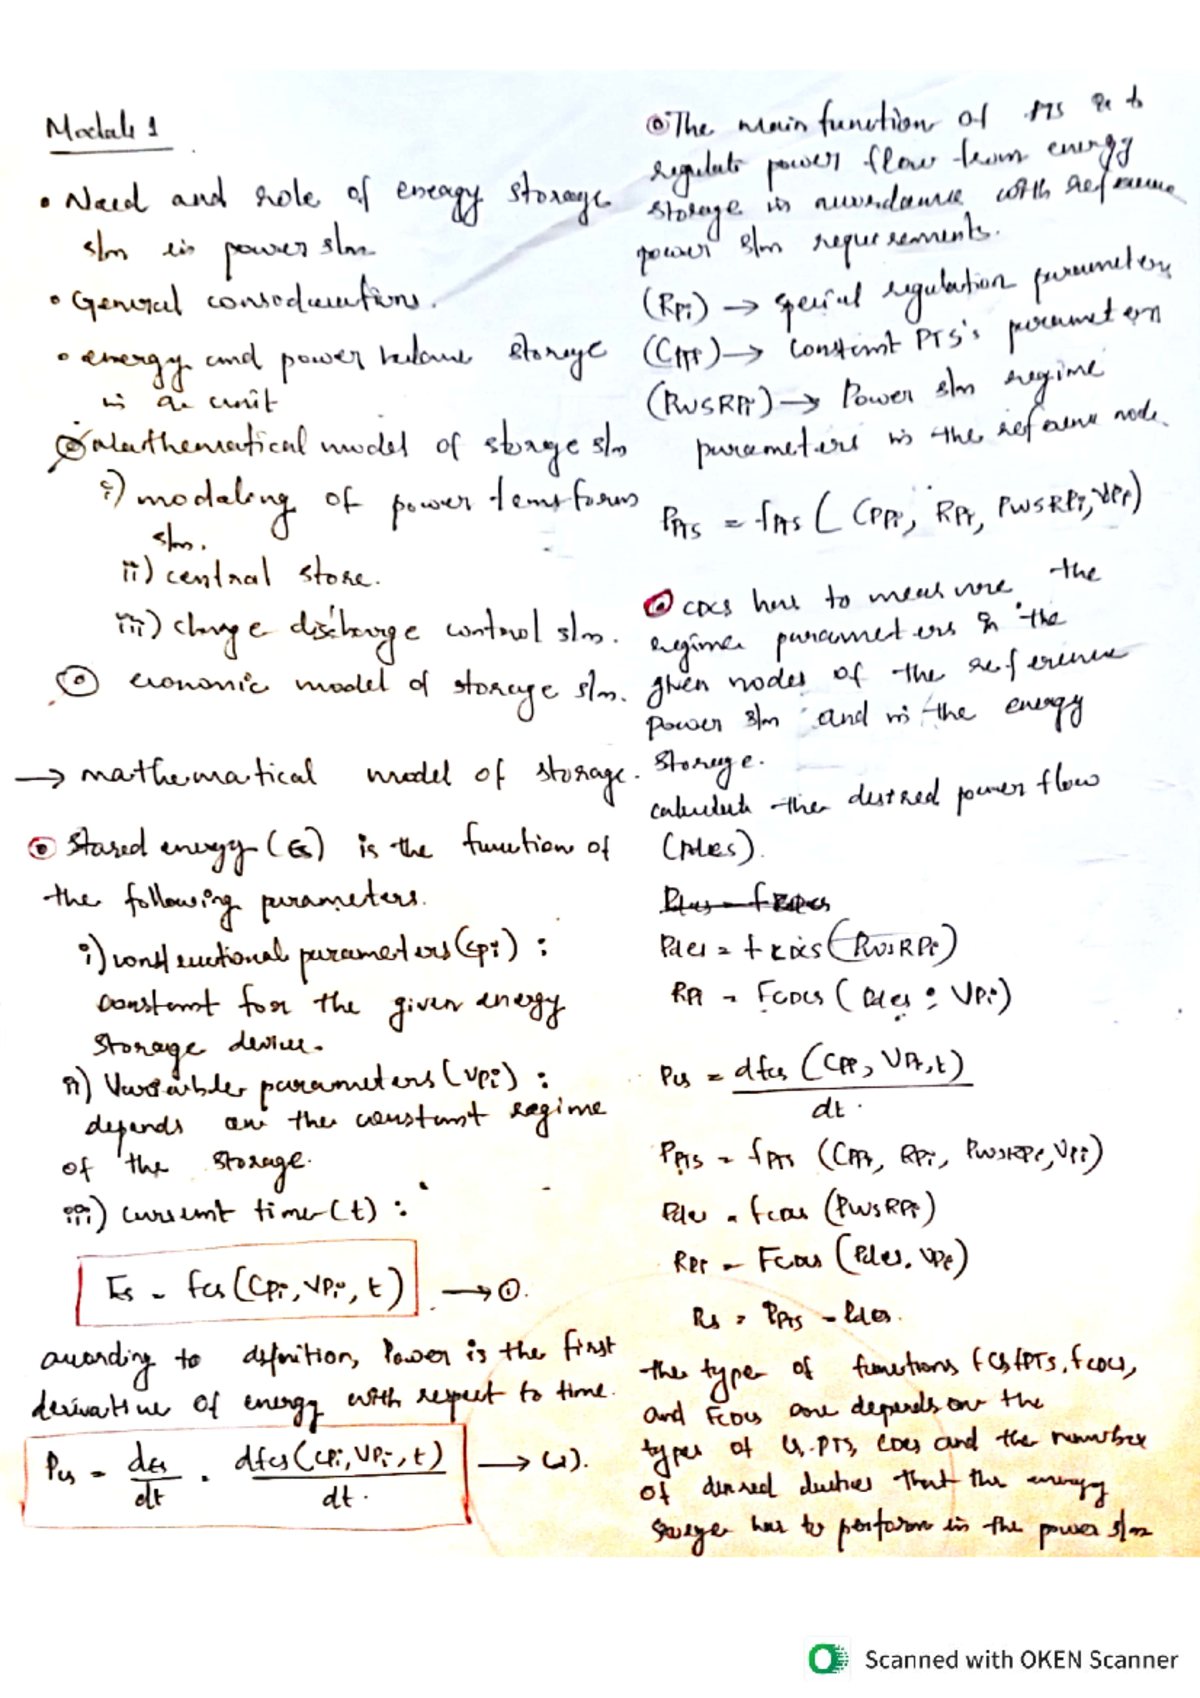 Module 1
• Need and role of energy storage
s/m in power s/m
• General considerations.
• energy and power balance storage
in a unit
Mathematical model of storage s/m
i) modaling of power transform
s/m.
ii) central store.
iii) charge discharge control s/m.
economic model of storage s/m.
→ mathematical model of storage.
Stored energy (Es) is the function of
the following parameters.
i) constructional parameters (cpi) :
constant for the given energy
storage device.
ii) Variable parameters (vpi) :
depends on the constant regime
of the storage.
iii) current time (t) :
Es = fcs (Cpi, VPi, t) → ①.
according to definition, Power is the first
derivative of energy with respect to time.
Pcs = dEs/dt = dfcs (CPi, VPi, t)/dt. → (2).
The main function of PTS is to
regulate power flow from energy
storage in accordance with reference
power s/m requirements.
(RPi) → special regulation parameters
(CPPi) → Constant PTS's parameters
(PWSRPi) → Power s/m regime
parameters in the reference node.
PPTS = fPTS ( CPPi, RPi, PWSRPi, VPi)
CDCS has to measure the
regime parameters in the
given nodes of the reference
Power s/m and in the energy
Storage.
calculate the desired power flow
(Pdes).
Pdes = fCDCS (PWSRPi)
RPi = FCDCS ( Pdes : VPi)
Pcs = dfcs (CPi, VPi, t)
dt.
PPTS = fPTS (CPPi, RPi, PWSRPi, VPi)
Pdes = fCDCS (PWSRPi)
RPi = FCDCS (Pdes, VPi)
Ps = PPTS - Pdes.
the type of functions fCS fPTS, fCDCS,
and FCDCS are depends on the
types of CS, PTS, CDCS and the number
of desired duties that the energy
storage has to perform in the power s/m
Scanned with OKEN Scanner